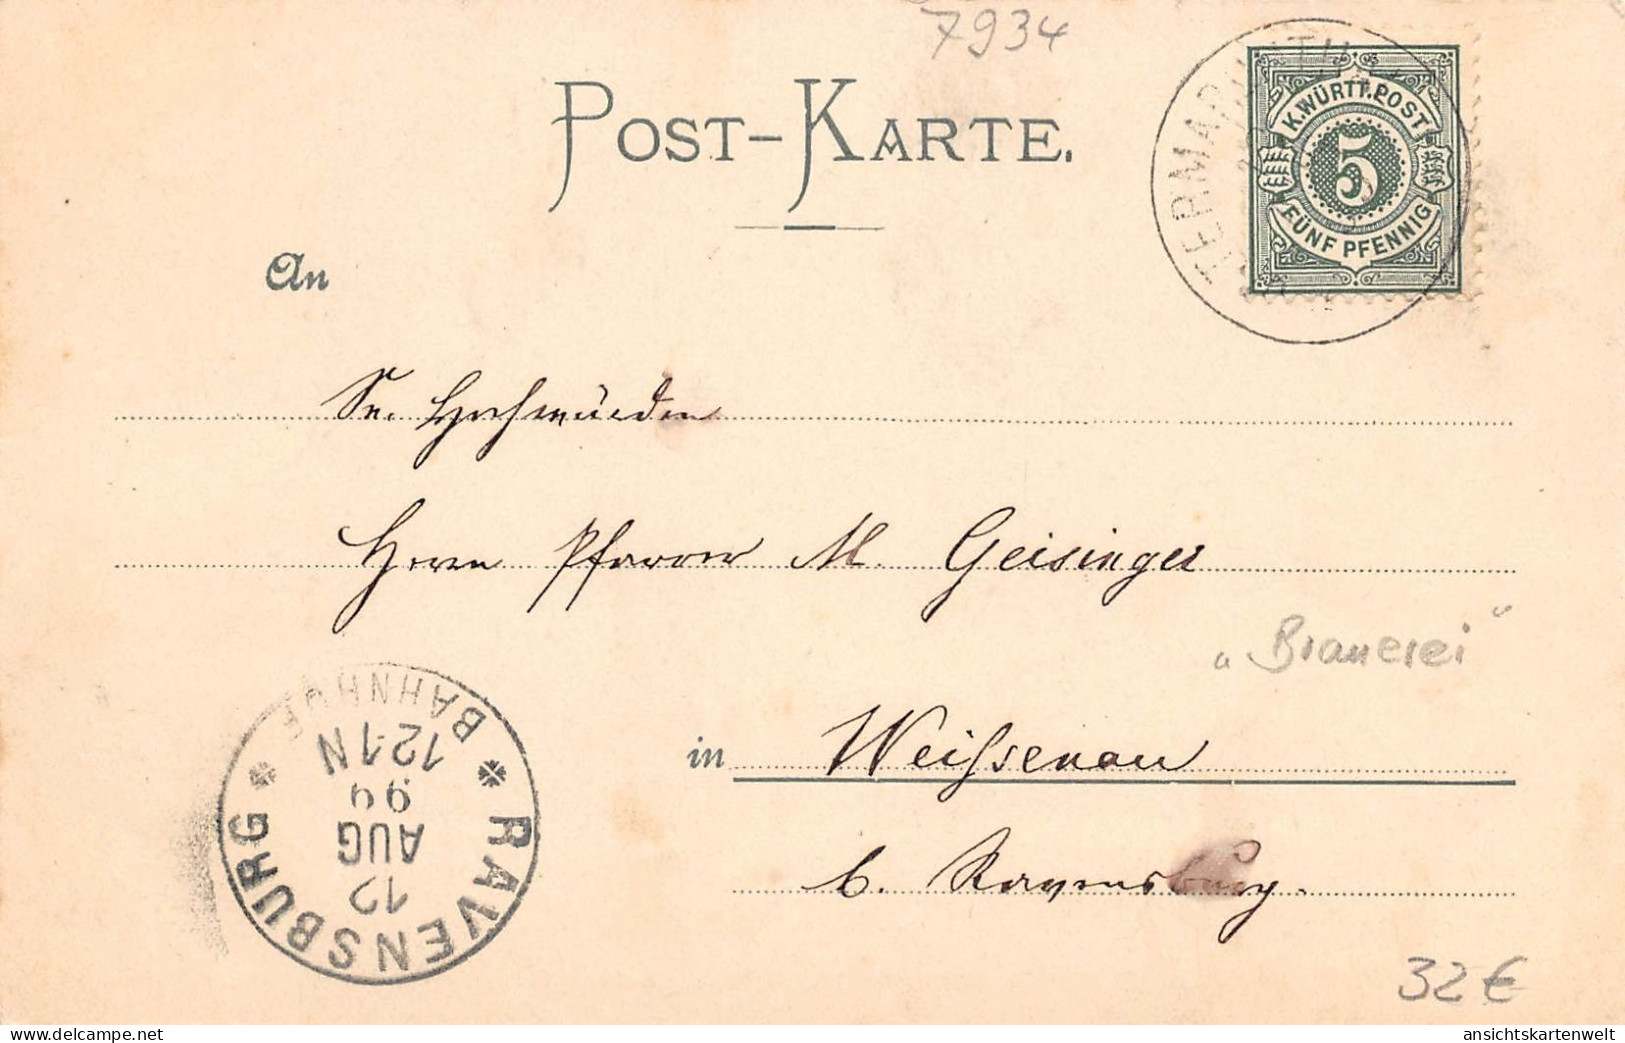 7934
POST-KARTE.
K.WÜRTT.POST
5
FÜNF PFENNIG
TERMARCHTHAL
An
Sr. Hochwürden
Herrn Pfarrer M. Geisinger
„Brauerei"
in Weißenau
b. Ravensburg.
RAVENSBURG
12
AUG
99
12-1N
BAHNHOF
32€
ansichtskartenwelt